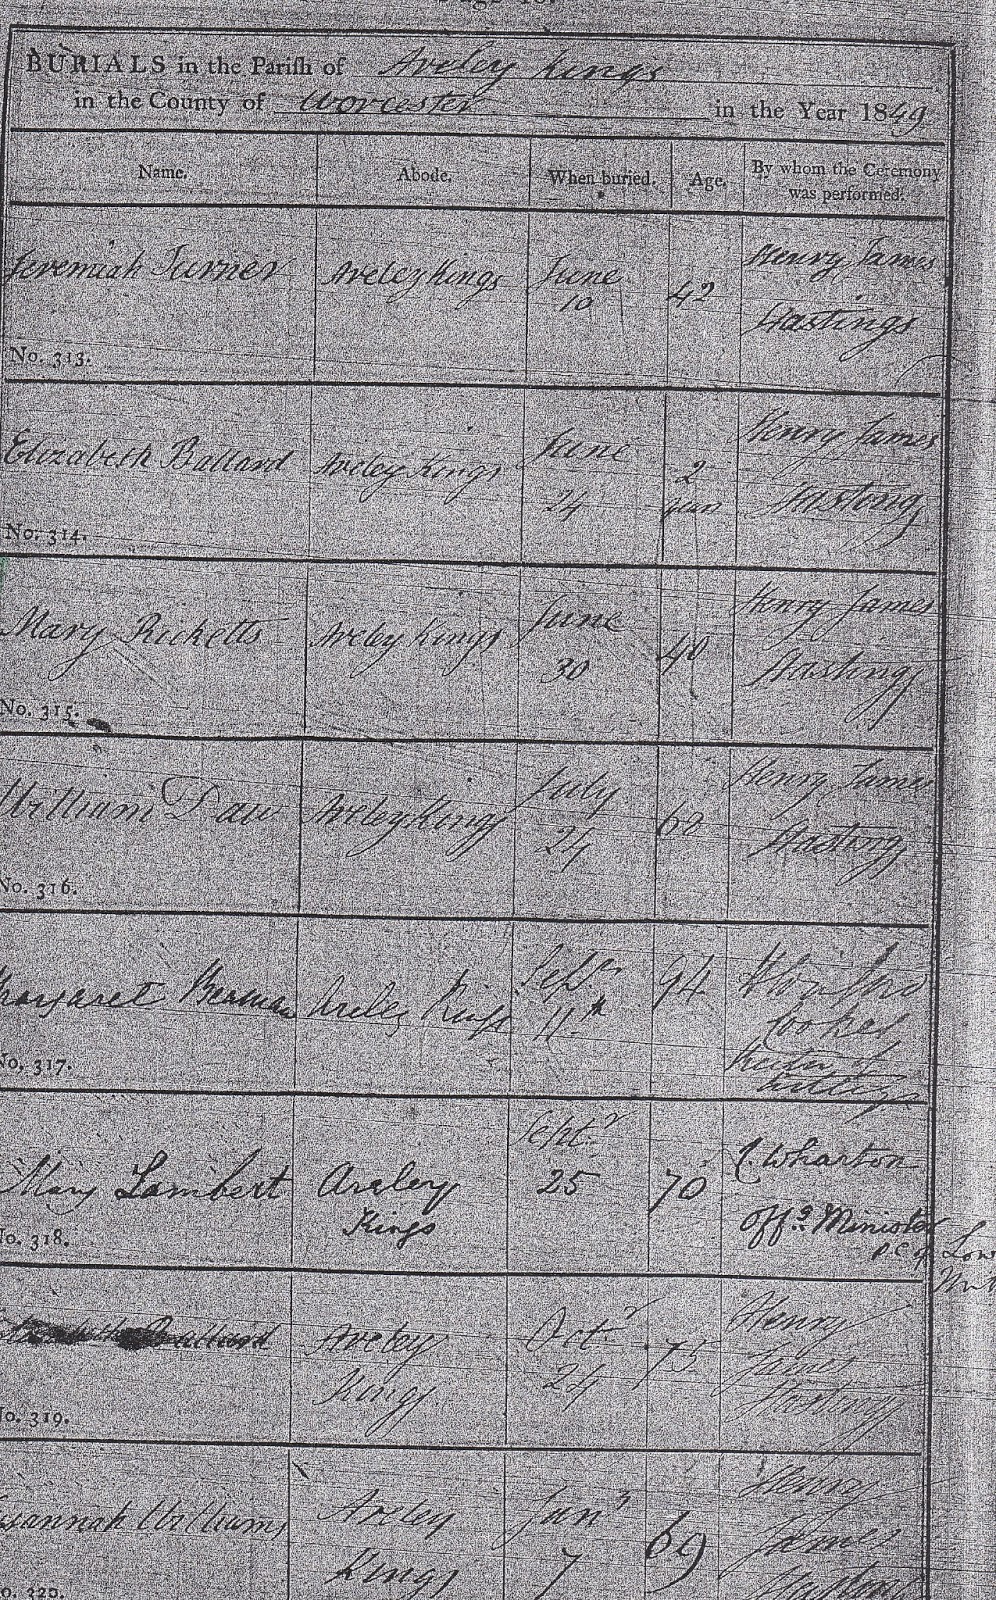 BURIALS in the Parish of Areley Kings
in the County of Worcester in the Year 1849
Name. Abode. When buried. Age. By whom the Ceremony
was performed.
Jeremiah Turner Areley Kings June 10 42 Henry James
Hastings
No. 313.
Elizabeth Ballard Areley Kings June 24 2 years Henry James
Hastings
No. 314.
Mary Ricketts Areley Kings June 30 40 Henry James
Hastings
No. 315.
William Daw Areley Kings July 24 60 Henry James
Hastings
No. 316.
Margaret Areley Kings Sepr 11th 94
Cookes
No. 317.
Mary Lambert Areley Kings Septr 25 70 C. Wharton
Offg Minister
P.C. of Low
No. 318.
Ballard Areley Kings Octr 24 75 Henry
James
Hastings
No. 319.
Susannah Williams Areley Kings Jany 7 69 Henry
James
Hastings
No. 320.